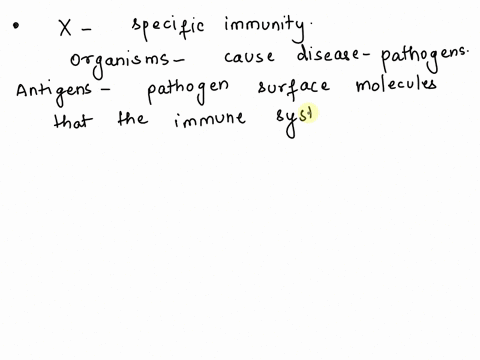 • X - specific immunity.
Organisms - cause disease - pathogens.
Antigens - pathogen surface molecules
that the immune syst